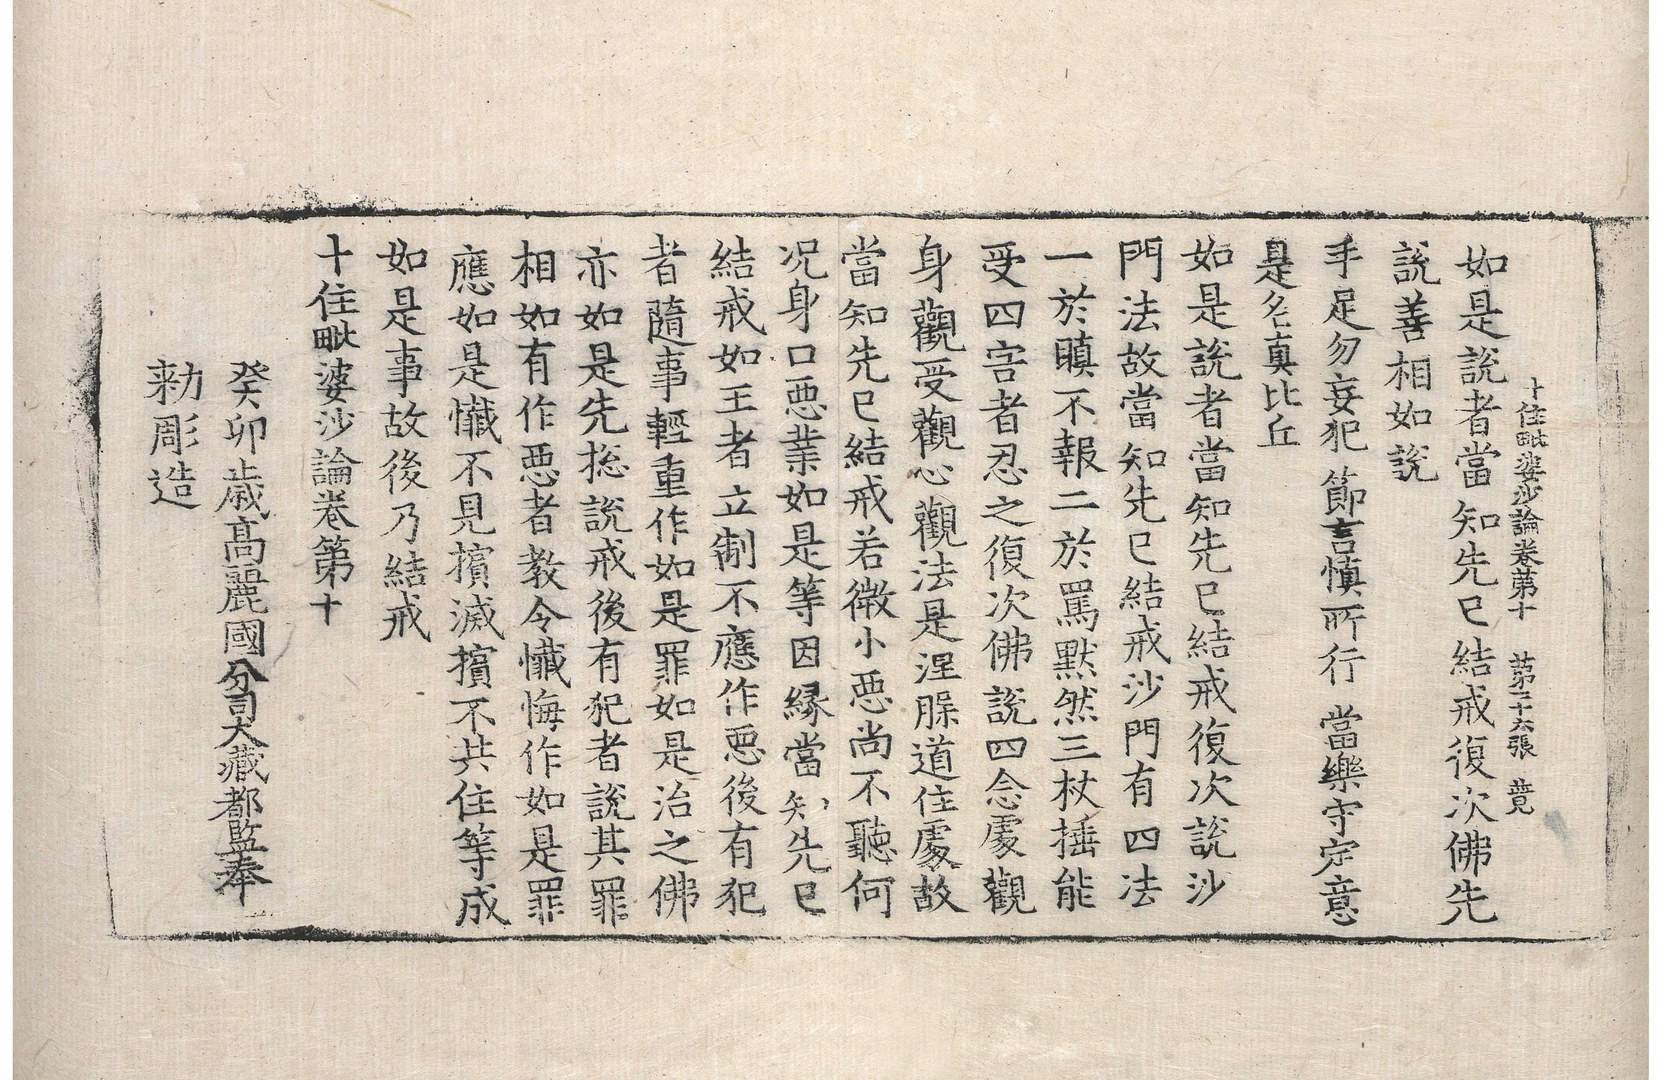 十住毗婆沙論卷第十　第二十六張　竟
如是說者當知先已結戒復次佛先
說善相如說
手足勿妄犯　節言慎所行　當樂守定意
是名真比丘
如是說者當知先已結戒復次說沙
門法故當知先已結戒沙門有四法
一於瞋不報二於罵默然三杖捶能
受四害者忍之復次佛說四念處觀
身觀受觀心觀法是涅槃道住處故
當知先已結戒若微小惡尚不聽何
况身口惡業如是等因緣當知先已
結戒如王者立制不應作惡後有犯
者隨事輕重作如是罪如是治之佛
亦如是先捴說戒後有犯者說其罪
相如有作惡者教令懺悔作如是罪
應如是懺不見擯滅擯不共住等成
如是事故後乃結戒
十住毗婆沙論卷第十
癸卯歲高麗國分司大藏都監奉
勅彫造